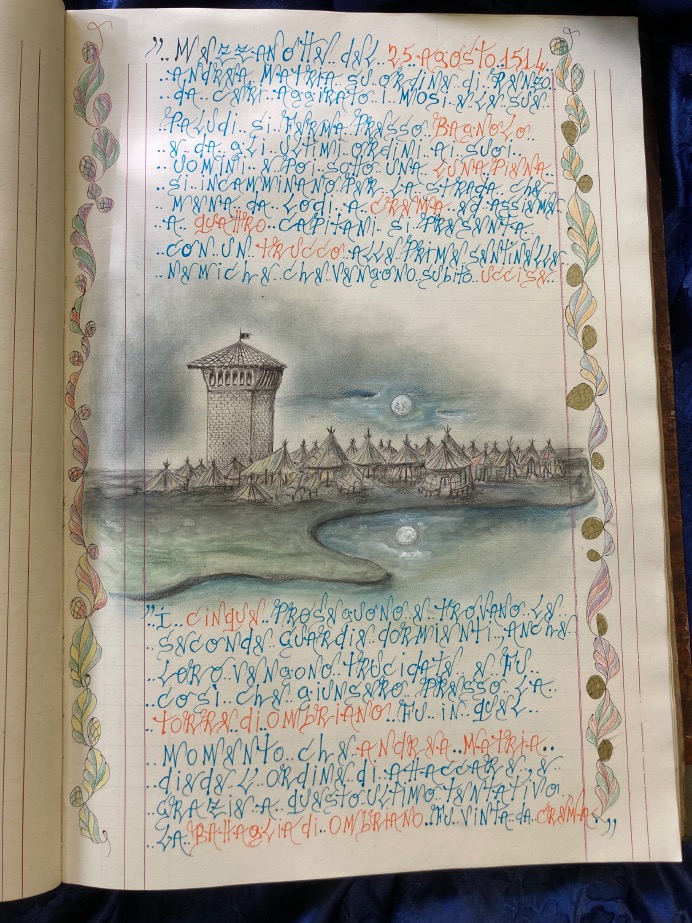 „.. MEZZANOTTE DEL.. 25.AGOSTO.1514..
..ANDREA MATRIA SU ORDINE DI RENZO..
DA CERI AGGIRATO I MOSI E LE SUE
..PALUDI.. SI FERMA PRESSO.. BAGNOLO
..E DA GLI ULTIMI ORDINI AI SUOI..
..UOMINI E POI SOTTO UNA LUNA PIENA..
..SI INCAMMINANO PER LA STRADA CHE
..MENA DA LODI A CREMA ED ASSIEME
A QUATTRO CAPITANI SI PRESENTA..
..CON UN TRUCCO ALLE PRIME SENTINELLE
..NEMICHE CHE VENGONO SUBITO UCCISE..
„I.. CINQUE PROSEGUONO E TROVANO LE
..SECONDE GUARDIE DORMIENTI, ANCHE
..LORO VENGONO TRUCIDATE.. E FU..
..COSÌ CHE GIUNSERO PRESSO LA
..TORRE DI OMBRIANO.. FU IN QUEL..
..MOMENTO.. CHE ANDREA.. MATRIA..
..DIEDE L'ORDINE DI ATTACCARE.. E
..GRAZIE A QUESTO ULTIMO TENTATIVO
..LA BATTAGLIA DI OMBRIANO.. FU VINTA DA CREMA„